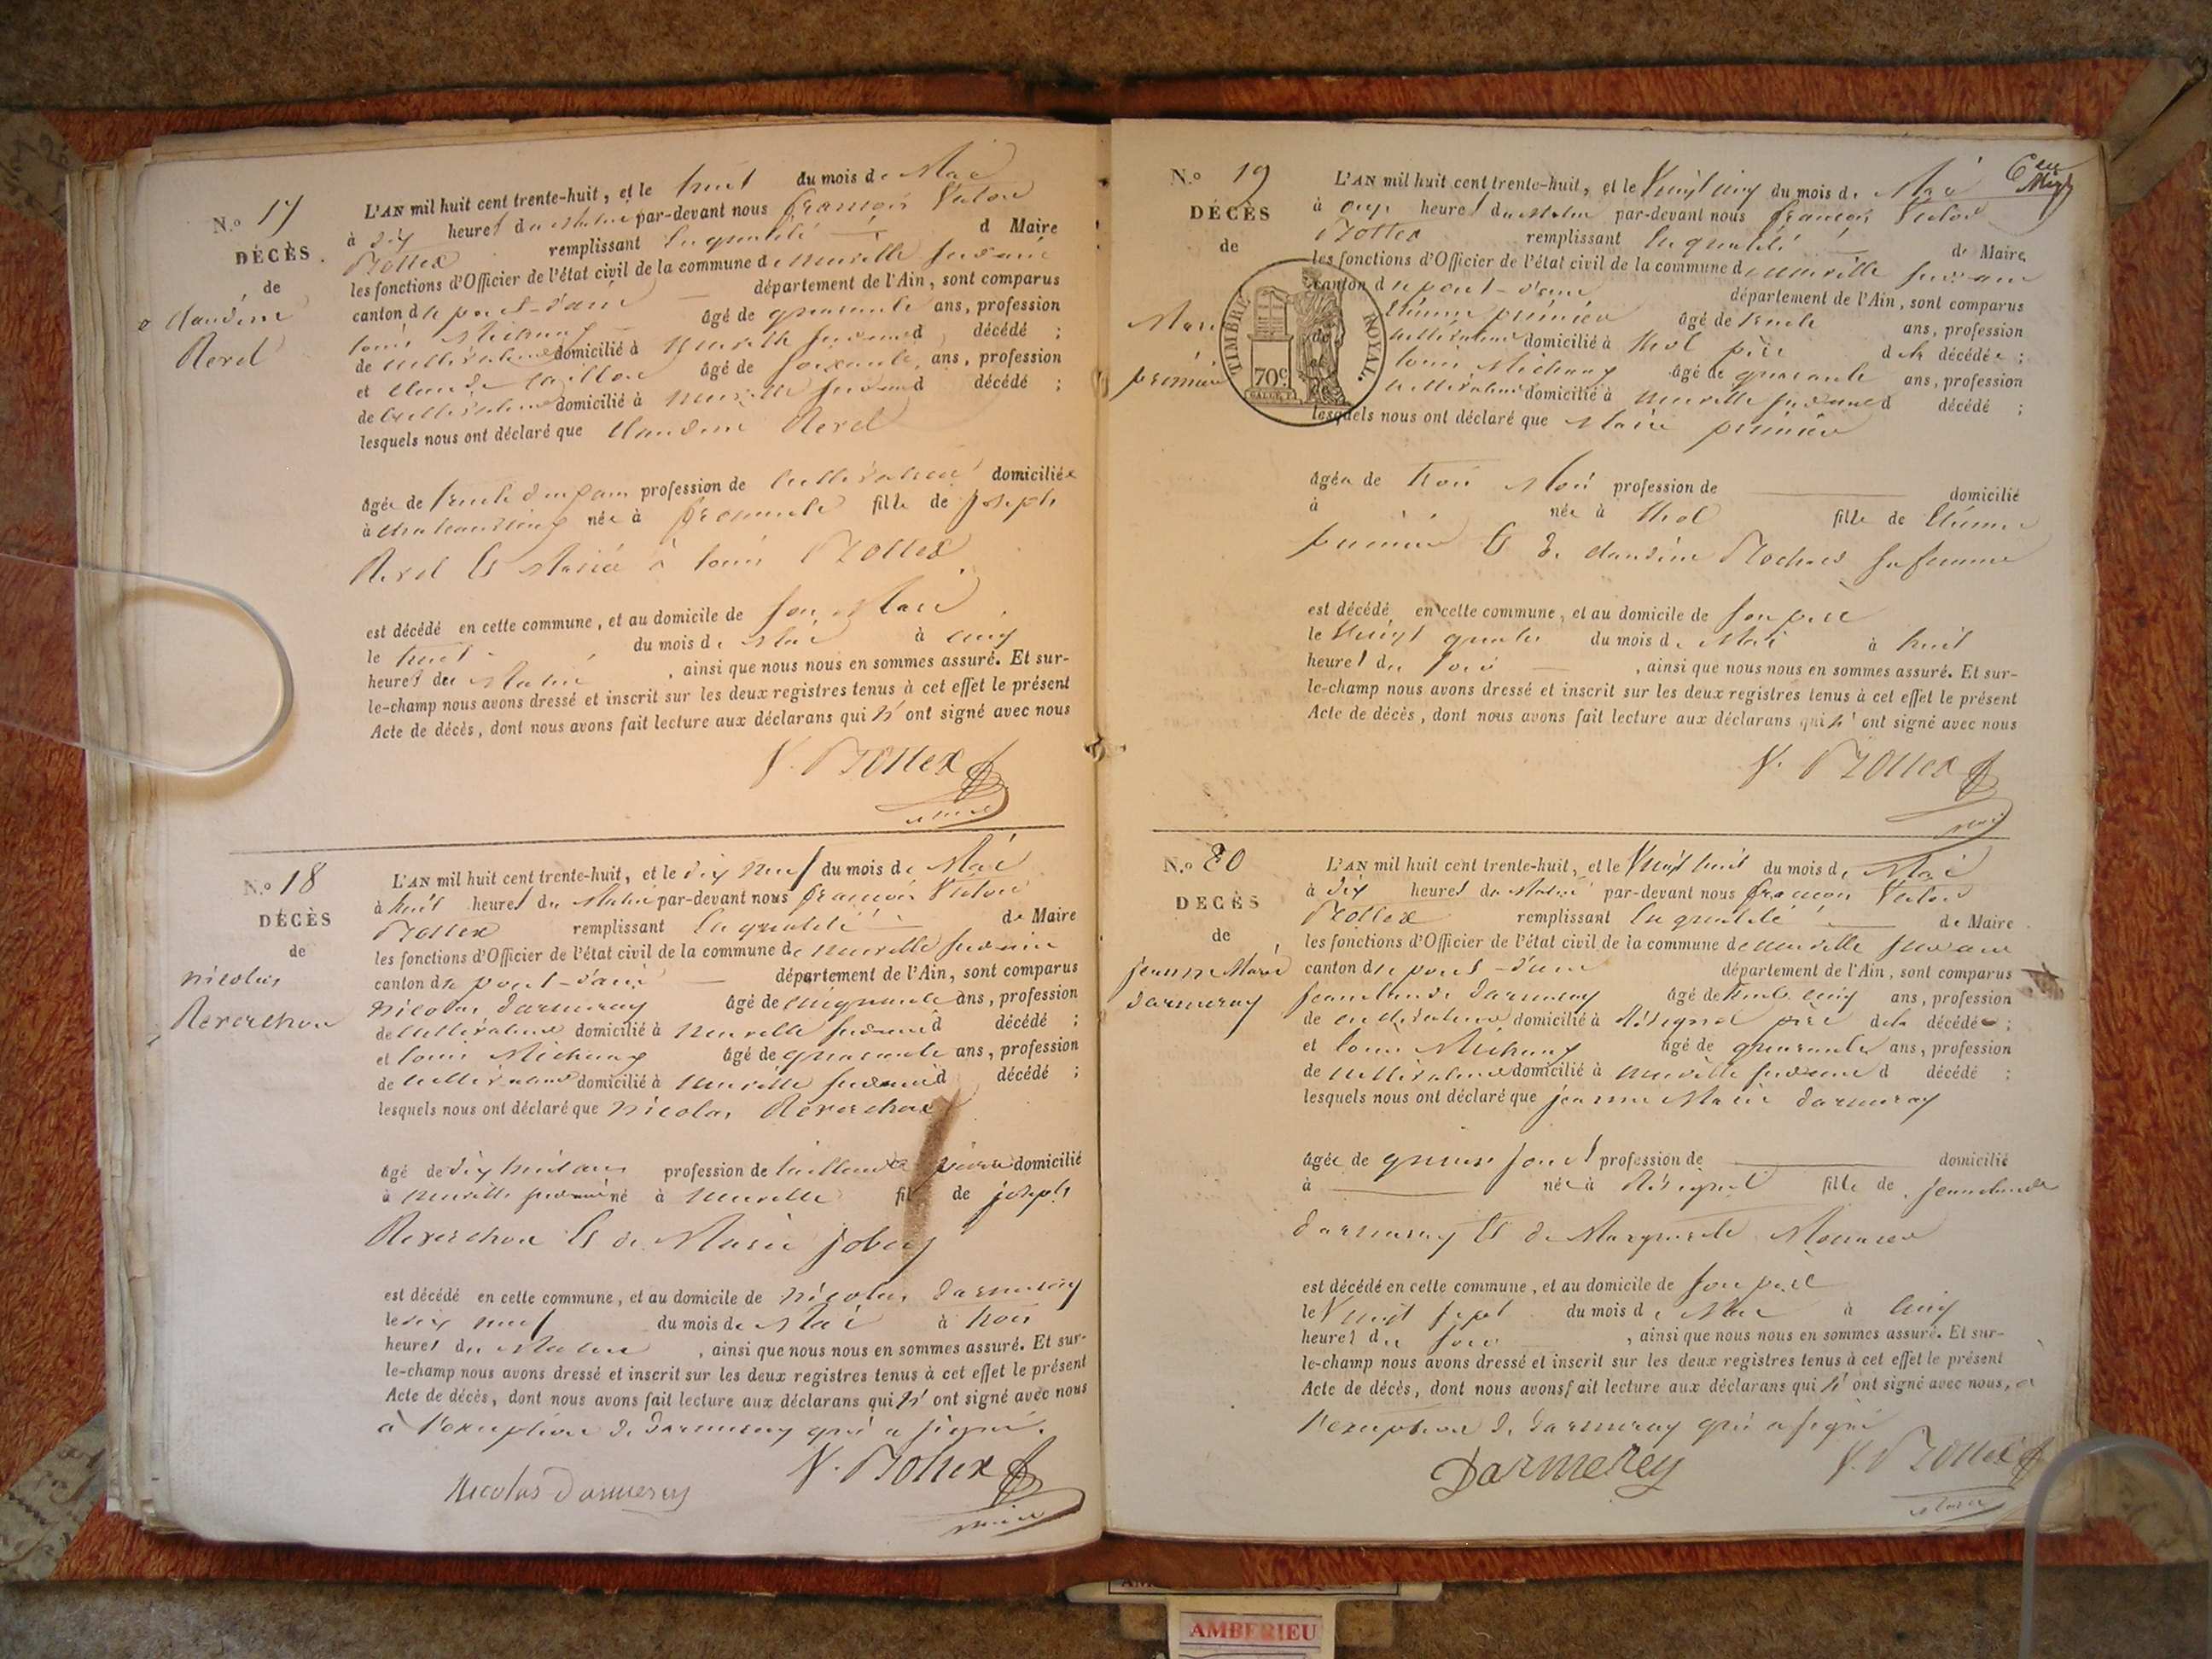 N.º 17
DÉCÈS
de
Claudine
Revel
L'AN mil huit cent trente-huit, et le huit du mois de Mai
à dix heures du Matin par-devant nous françois Victor
Bottex remplissant la qualité d Maire
les fonctions d'Officier de l'état civil de la commune de neuville sur ain
canton de pont-d'ain département de l'Ain, sont comparus
louis Michaux âgé de quarante ans, profession
de cultivateur domicilié à Neuville sur ain d décédé ;
et Claude âgé de soixante ans, profession
de Cultivateur domicilié à neuville sur ain d décédé ;
lesquels nous ont déclaré que Claudine Revel
âgée de trente cinq ans profession de Cultivateur domiciliée
à née à fromente fille de joseph
Revel et Mariée à louis Bottex
est décédé en cette commune, et au domicile de son Mari
le huit du mois de Mai à cinq
heures du Matin , ainsi que nous nous en sommes assuré. Et sur-
le-champ nous avons dressé et inscrit sur les deux registres tenus à cet effet le présent
Acte de décès, dont nous avons fait lecture aux déclarans qui n' ont signé avec nous
V. Bottex
maire
N.º 18
DÉCÈS
de
nicolas
Reverchon
L'AN mil huit cent trente-huit, et le dix neuf du mois de Mai
à huit heures du Matin par-devant nous françois Victor
Bottex remplissant la qualité de Maire
les fonctions d'Officier de l'état civil de la commune de neuville sur ain
canton de pont-d'ain département de l'Ain, sont comparus
nicolas darmeray âgé de cinquante ans, profession
de cultivateur domicilié à neuville sur ain d décédé ;
et louis Michaux âgé de quarante ans, profession
de cultivateur domicilié à neuville sur ain d décédé ;
lesquels nous ont déclaré que nicolas Reverchon
âgé de dix huit ans profession de tailleur de pierre domicilié
à neuville sur ain né à neuville fil de joseph
Reverchon et de Marie
est décédé en cette commune, et au domicile de nicolas darmeray
le dix neuf du mois de Mai à trois
heures du Matin , ainsi que nous nous en sommes assuré. Et sur-
le-champ nous avons dressé et inscrit sur les deux registres tenus à cet effet le présent
Acte de décès, dont nous avons fait lecture aux déclarans qui n' ont signé avec nous
à l'exception de darmeray qui a signé.
V. Bottex
Nicolas Darmerey
maire
N.º 19
DÉCÈS
de
Marie
prémier
TIMBRE ROYAL.
70c
L'AN mil huit cent trente-huit, et le Vingt cinq du mois de Mai
à onze heures du Matin par-devant nous françois Victor
Bottex remplissant la qualité de Maire
les fonctions d'Officier de l'état civil de la commune de neuville sur ain
canton de pont-d'ain département de l'Ain, sont comparus
Etienne prémier âgé de trente ans, profession
de cultivateur domicilié à thol père de la décédée ;
et louis Michaux âgé de quarante ans, profession
de cultivateur domicilié à neuville sur ain d décédé ;
lesquels nous ont déclaré que Marie prémier
âgée de trois Mois profession de domicilié
à née à thol fille de Etienne
prémier et de claudine Rochas sa femme
est décédé en cette commune, et au domicile de son père
le Vingt quatre du mois de Mai à huit
heures du soir , ainsi que nous nous en sommes assuré. Et sur-
le-champ nous avons dressé et inscrit sur les deux registres tenus à cet effet le présent
Acte de décès, dont nous avons fait lecture aux déclarans qui n' ont signé avec nous
V. Bottex
maire
N.º 20
DECÈS
de
jeanne Marie
darmeray
L'AN mil huit cent trente-huit, et le Vingt huit du mois de Mai
à dix heures du Matin par-devant nous françois Victor
Bottex remplissant la qualité de Maire
les fonctions d'Officier de l'état civil de la commune de neuville sur ain
canton de pont-d'ain département de l'Ain, sont comparus
jean claude darmeray âgé de trente cinq ans, profession
de cultivateur domicilié à Résignel père de la décédée ;
et louis Michaux âgé de quarante ans, profession
de cultivateur domicilié à neuville sur ain d décédé ;
lesquels nous ont déclaré que jeanne Marie darmeray
âgée de quinze jours profession de domicilié
à née à Résignel fille de jean claude
darmeray et de Marguerite Mounier
est décédé en cette commune, et au domicile de son père
le Vingt sept du mois de Mai à cinq
heures du soir , ainsi que nous nous en sommes assuré. Et sur-
le-champ nous avons dressé et inscrit sur les deux registres tenus à cet effet le présent
Acte de décès, dont nous avons fait lecture aux déclarans qui n' ont signé avec nous, à
l'exception de darmeray qui a signé
Darmerey
V. Bottex
maire
AMBERIEU